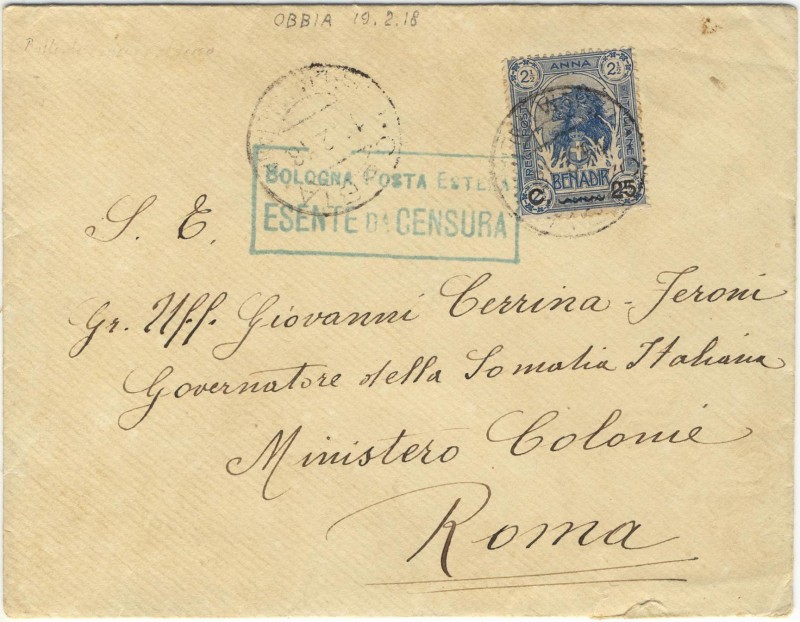 OBBIA 19.2.18
2½ ANNA 2½
REGIE POSTE ITALIANE
BENADIR
C. 25
BOLOGNA POSTA ESTERA
ESENTE DA CENSURA
S. E.
Gr. Uff. Giovanni Cerrina-Feroni
Governatore della Somalia Italiana
Ministero Colonie
Roma